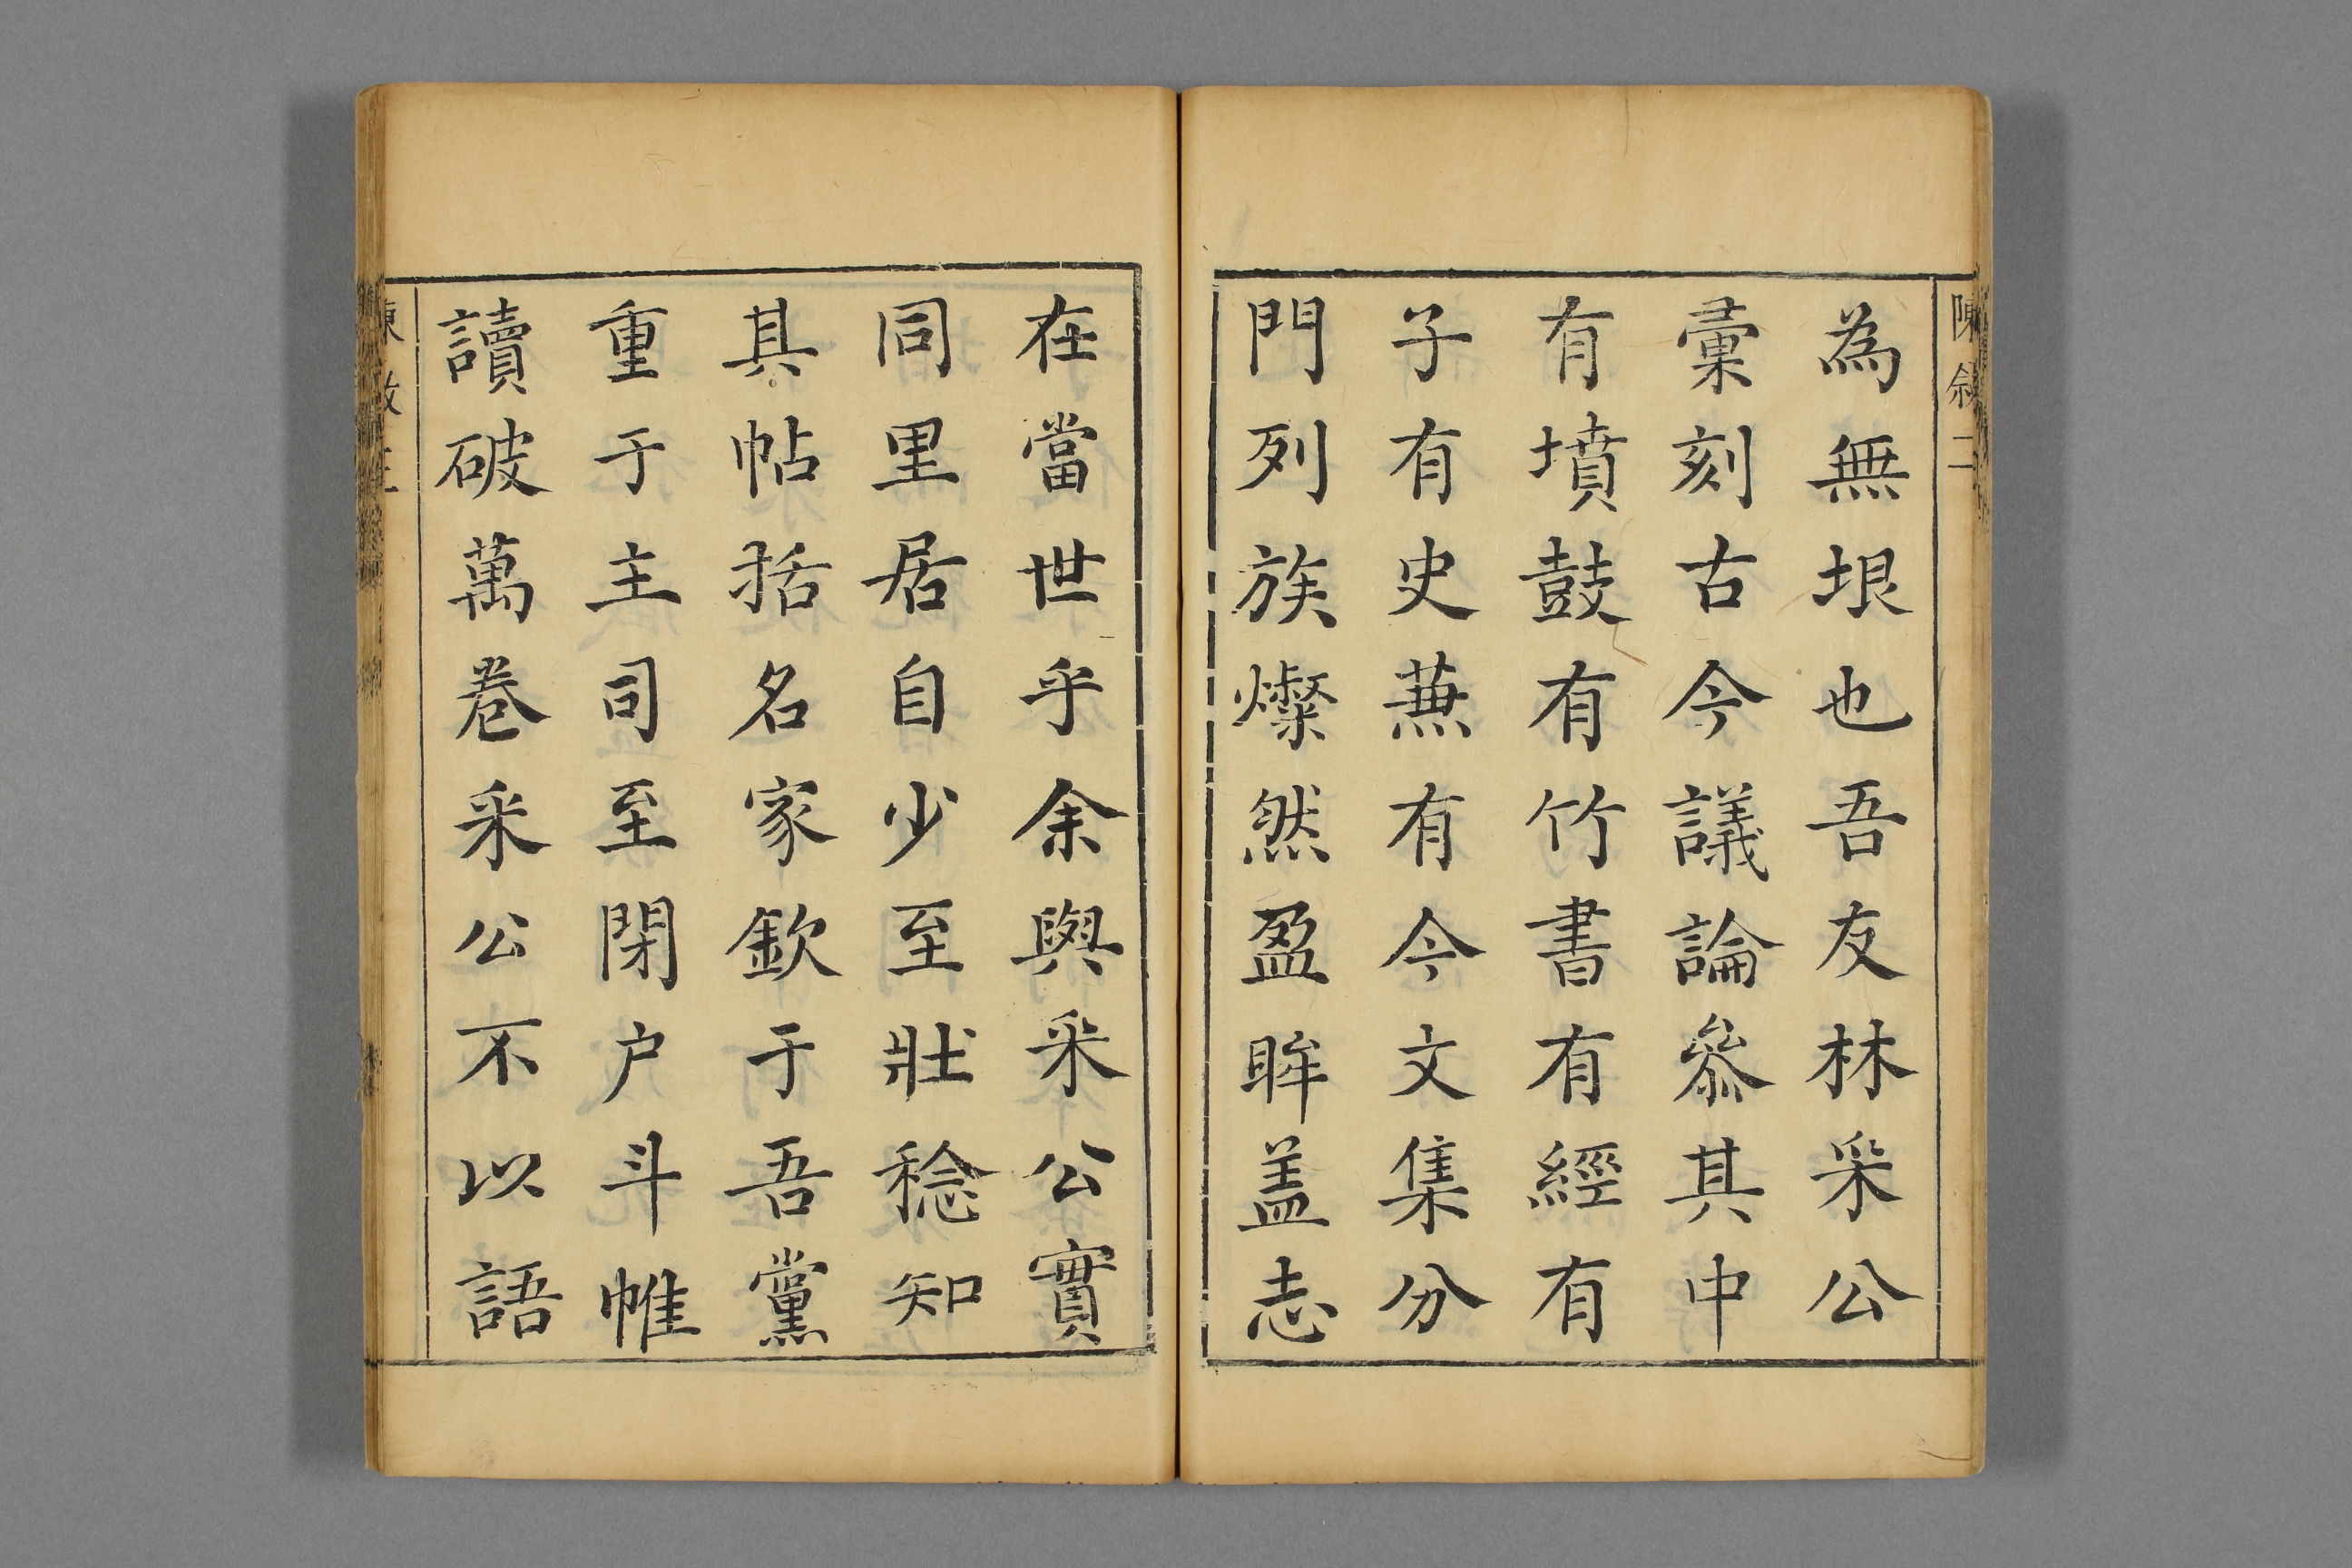 陳叙二
為無垠也吾友林釆公
彚刻古今議論叅其中
有墳鼓有竹書有經有
子有史蕪有今文集分
門列族燦然盈眸盖志
在當世乎余與釆公實
同里居自少至壯稔知
其帖括名家欽于吾黨
重于主司至閉户斗帷
讀破萬卷釆公不以語